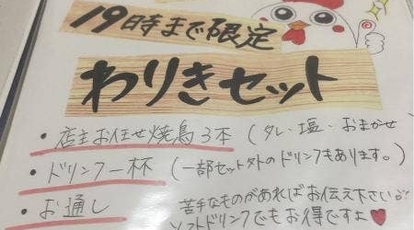 19時まで限定
わりきセット
・店主お任せ焼鳥3本 (タレ・塩・おまかせ
・ドリンク一杯 (一部セット外のドリンクもあります。)
・お通し
苦手なものがあればお伝え下さい
ソフトドリンクでもお得ですよ♥